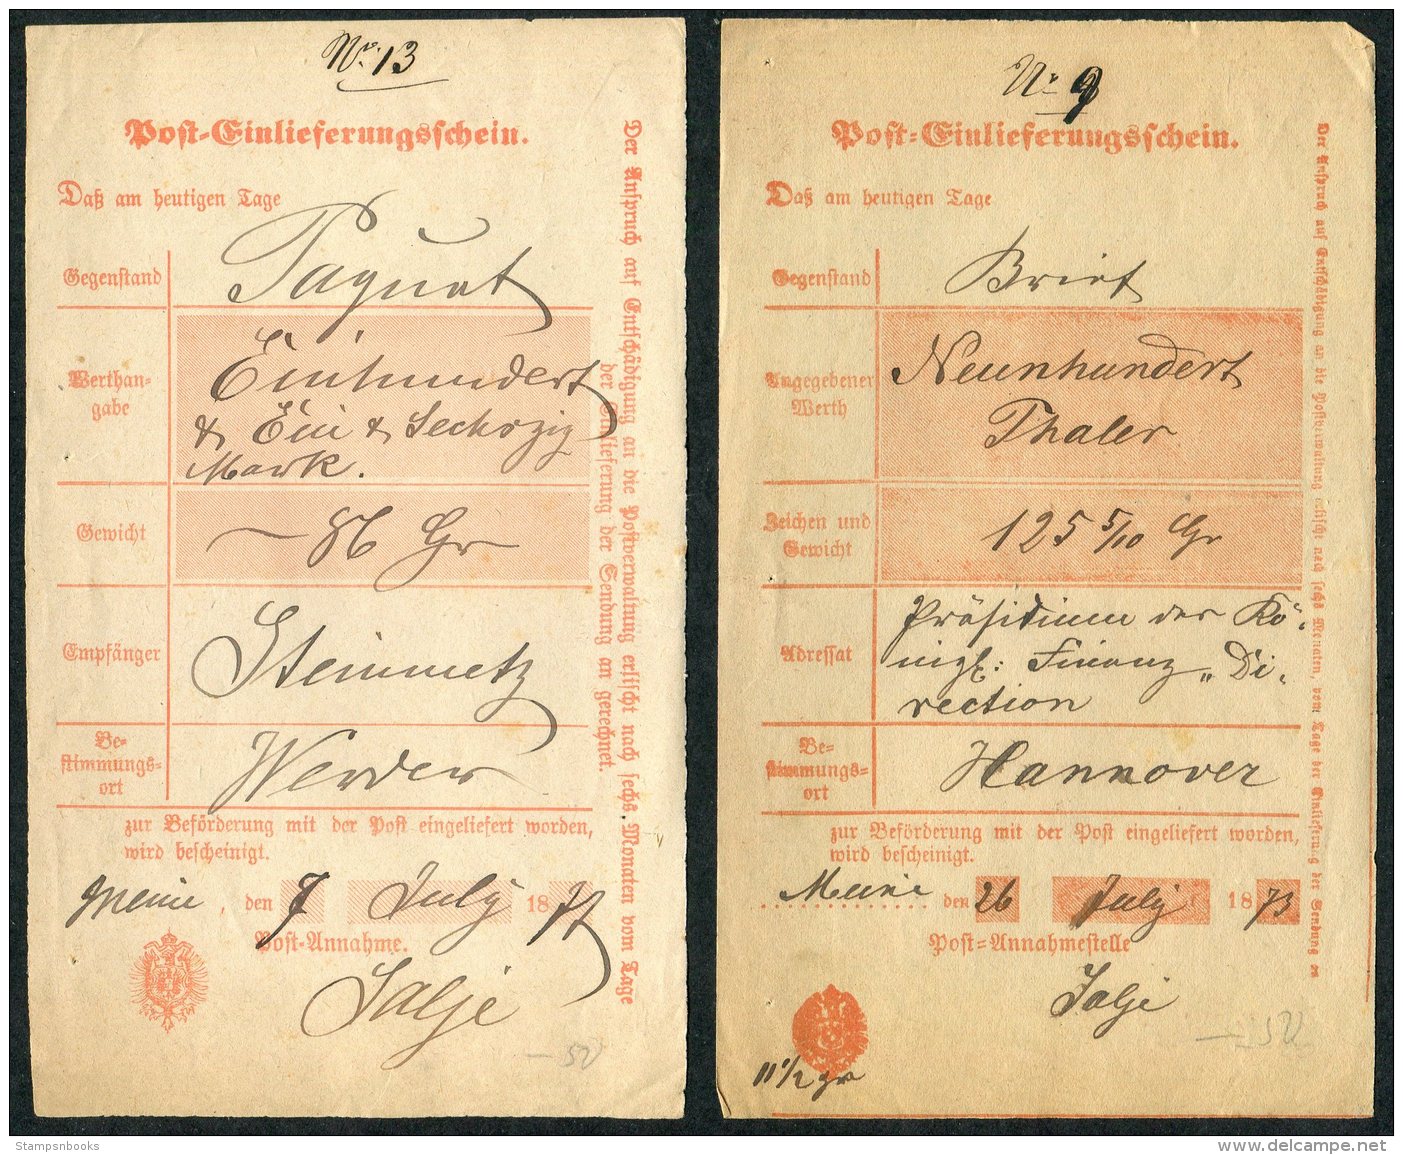 No. 13
Post-Einlieferungsschein.
Daß am heutigen Tage
Gegenstand
Paquet
Werthan-
gabe
Einhundert
& Ein & Sechszig
Mark.
Gewicht
86 Gr
Empfänger
Steinmetz
Be-
stimmungs-
ort
Werder
zur Beförderung mit der Post eingeliefert worden,
wird bescheinigt.
Meine, den 7 July 18
Post-Annahme.
Salje
Der Anspruch auf Entschädigung an die Postverwaltung erlischt nach sechs Monaten vom Tage
der Einlieferung der Sendung an gerechnet.
No 9
Post-Einlieferungsschein.
Daß am heutigen Tage
Gegenstand
Brief
Angegebener
Werth
Neunhundert
Thaler
Zeichen und
Gewicht
125 5/10 Gr
Adressat
Präsidium der Kö-
nigl: Finanz „ Di-
rection
Be-
stimmungs-
ort
Hannover
zur Beförderung mit der Post eingeliefert worden,
wird bescheinigt.
Meine den 26 July 1873
Post-Annahmestelle
Salje
11 1/2 gr
Der Anspruch auf Entschädigung an die Postverwaltung erlischt nach sechs Monaten, vom Tage der Einlieferung der Sendung an
Stampsnbooks
delcampe.net